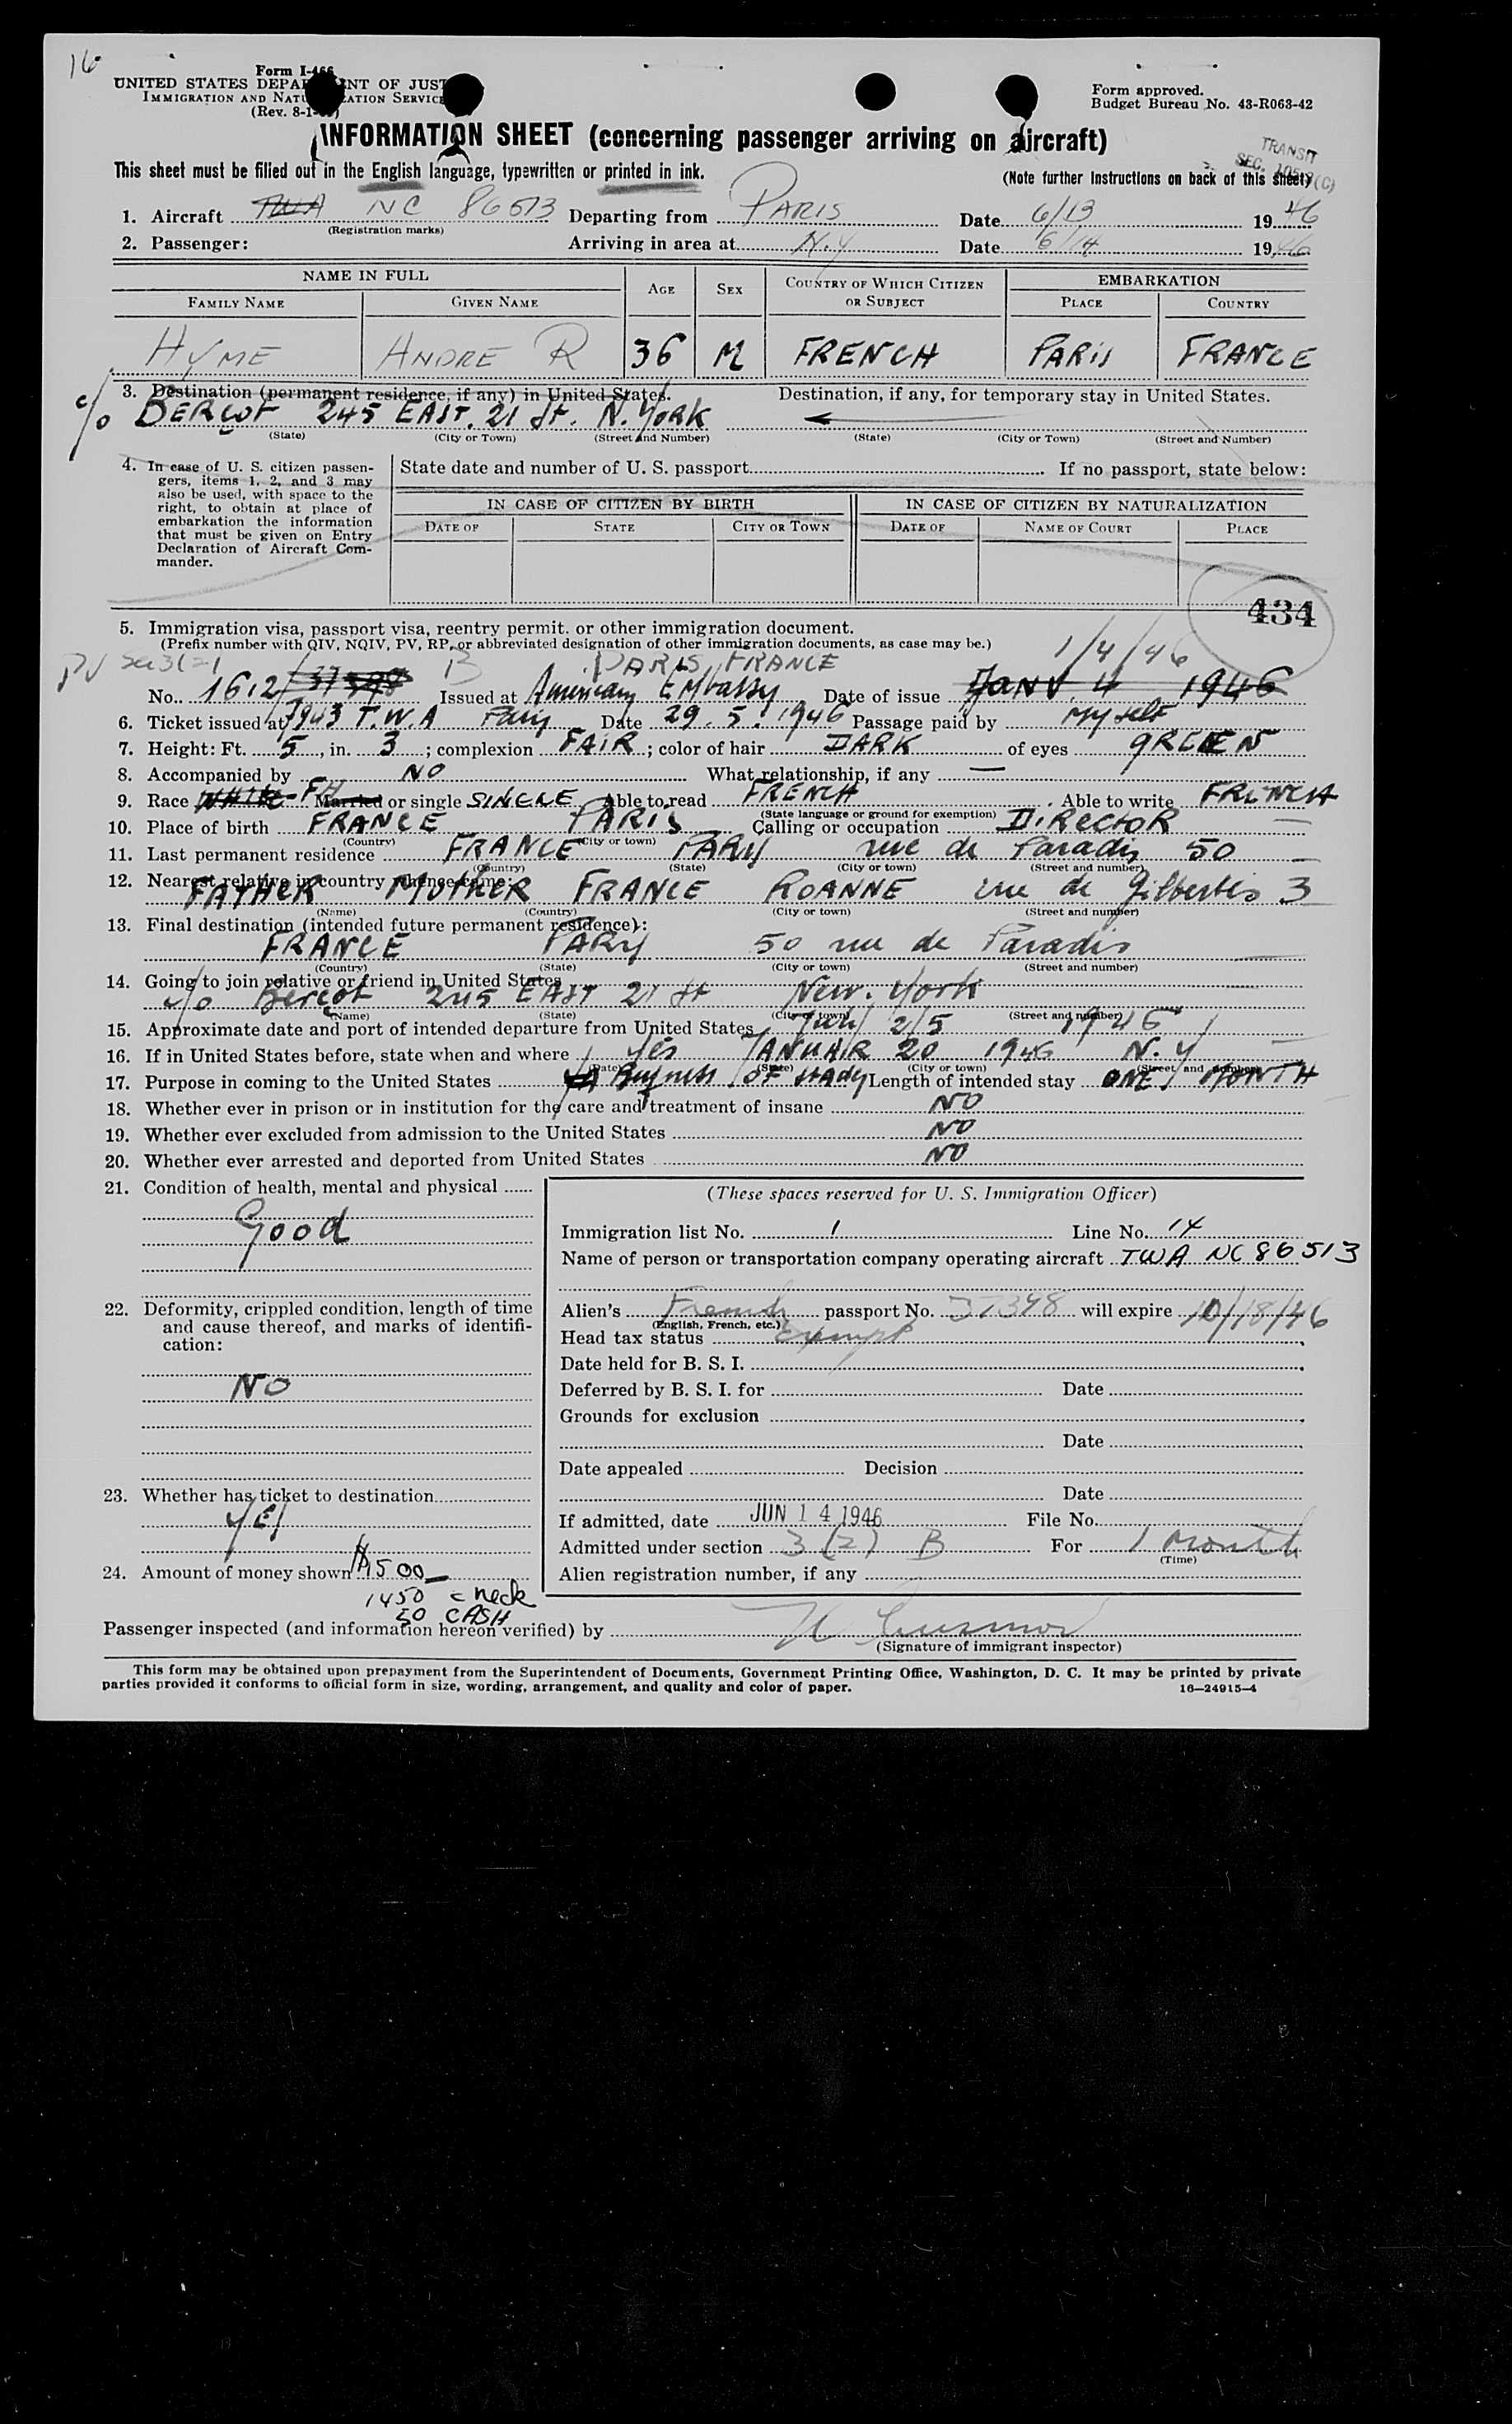 16
Form I-466
UNITED STATES DEPARTMENT OF JUSTICE
IMMIGRATION AND NATURALIZATION SERVICE
(Rev. 8-1-)
Form approved.
Budget Bureau No. 43-R063-42
INFORMATION SHEET (concerning passenger arriving on aircraft)
TRANSIT
SEC.
This sheet must be filled out in the English language, typewritten or printed in ink.
(Note further instructions on back of this sheet)
1. Aircraft TWA NC 86513 Departing from PARIS Date 6/13 1946
(Registration marks)
2. Passenger: Arriving in area at N.Y Date 6/14 1946
NAME IN FULL AGE SEX COUNTRY OF WHICH CITIZEN OR SUBJECT EMBARKATION
FAMILY NAME GIVEN NAME PLACE COUNTRY
HYME ANDRE R 36 M FRENCH PARIS FRANCE
3. Destination (permanent residence, if any) in United States. Destination, if any, for temporary stay in United States.
c/o BERCOT 245 EAST. 21 St. N. YORK
(State) (City or Town) (Street and Number) (State) (City or Town) (Street and Number)
4. In case of U. S. citizen passengers, items 1, 2, and 3 may also be used, with space to the right, to obtain at place of embarkation the information that must be given on Entry Declaration of Aircraft Commander.
State date and number of U. S. passport If no passport, state below:
IN CASE OF CITIZEN BY BIRTH IN CASE OF CITIZEN BY NATURALIZATION
DATE OF STATE CITY OR TOWN DATE OF NAME OF COURT PLACE
434
5. Immigration visa, passport visa, reentry permit, or other immigration document.
(Prefix number with QIV, NQIV, PV, RP, or abbreviated designation of other immigration documents, as case may be.)
PV B PARIS, FRANCE 1/4/46
No. 1612 37398 Issued at American Embassy Date of issue JANV. 4 1946
6. Ticket issued at 7943 T.W.A Paris Date 29.5.1946 Passage paid by My self
7. Height: Ft. 5, in. 3; complexion FAIR; color of hair DARK of eyes GREEN
8. Accompanied by NO What relationship, if any —
9. Race WHITE FH Married or single SINGLE Able to read FRENCH. Able to write FRENCH
(State language or ground for exemption)
10. Place of birth FRANCE PARIS Calling or occupation DIRECTOR
(Country) (City or town)
11. Last permanent residence FRANCE PARIS rue de Paradis 50
(Country) (State) (City or town) (Street and number)
12. Nearest relative in country whence came:
FATHER MOTHER FRANCE ROANNE rue de Gilbertes 3
(Name) (Country) (City or town) (Street and number)
13. Final destination (intended future permanent residence):
FRANCE PARIS 50 rue de Paradis
(Country) (State) (City or town) (Street and number)
14. Going to join relative or friend in United States
c/o Bercot 245 EAST 21 St New. York
(Name) (State) (City or town) (Street and number)
15. Approximate date and port of intended departure from United States 1946
16. If in United States before, state when and where Yes JANUAIR 20 1946 N.Y
(Date) (State) (City or town) (Street and number)
17. Purpose in coming to the United States Busyness OF stady Length of intended stay ONE MONTH
18. Whether ever in prison or in institution for the care and treatment of insane NO
19. Whether ever excluded from admission to the United States NO
20. Whether ever arrested and deported from United States NO
21. Condition of health, mental and physical
Good
22. Deformity, crippled condition, length of time and cause thereof, and marks of identification:
NO
23. Whether has ticket to destination
YES
24. Amount of money shown $1500
1450 check
50 CASH
(These spaces reserved for U. S. Immigration Officer)
Immigration list No. 1 Line No. 14
Name of person or transportation company operating aircraft TWA NC 86513
Alien's French passport No. 37398 will expire 10/18/46
(English, French, etc.)
Head tax status Exempt
Date held for B. S. I.
Deferred by B. S. I. for Date
Grounds for exclusion
Date
Date appealed Decision
Date
If admitted, date JUN 14 1946 File No.
Admitted under section 3(2) B For 1 Month
(Time)
Alien registration number, if any
Passenger inspected (and information hereon verified) by
(Signature of immigrant inspector)
This form may be obtained upon prepayment from the Superintendent of Documents, Government Printing Office, Washington, D. C. It may be printed by private
parties provided it conforms to official form in size, wording, arrangement, and quality and color of paper. 16—24915-4